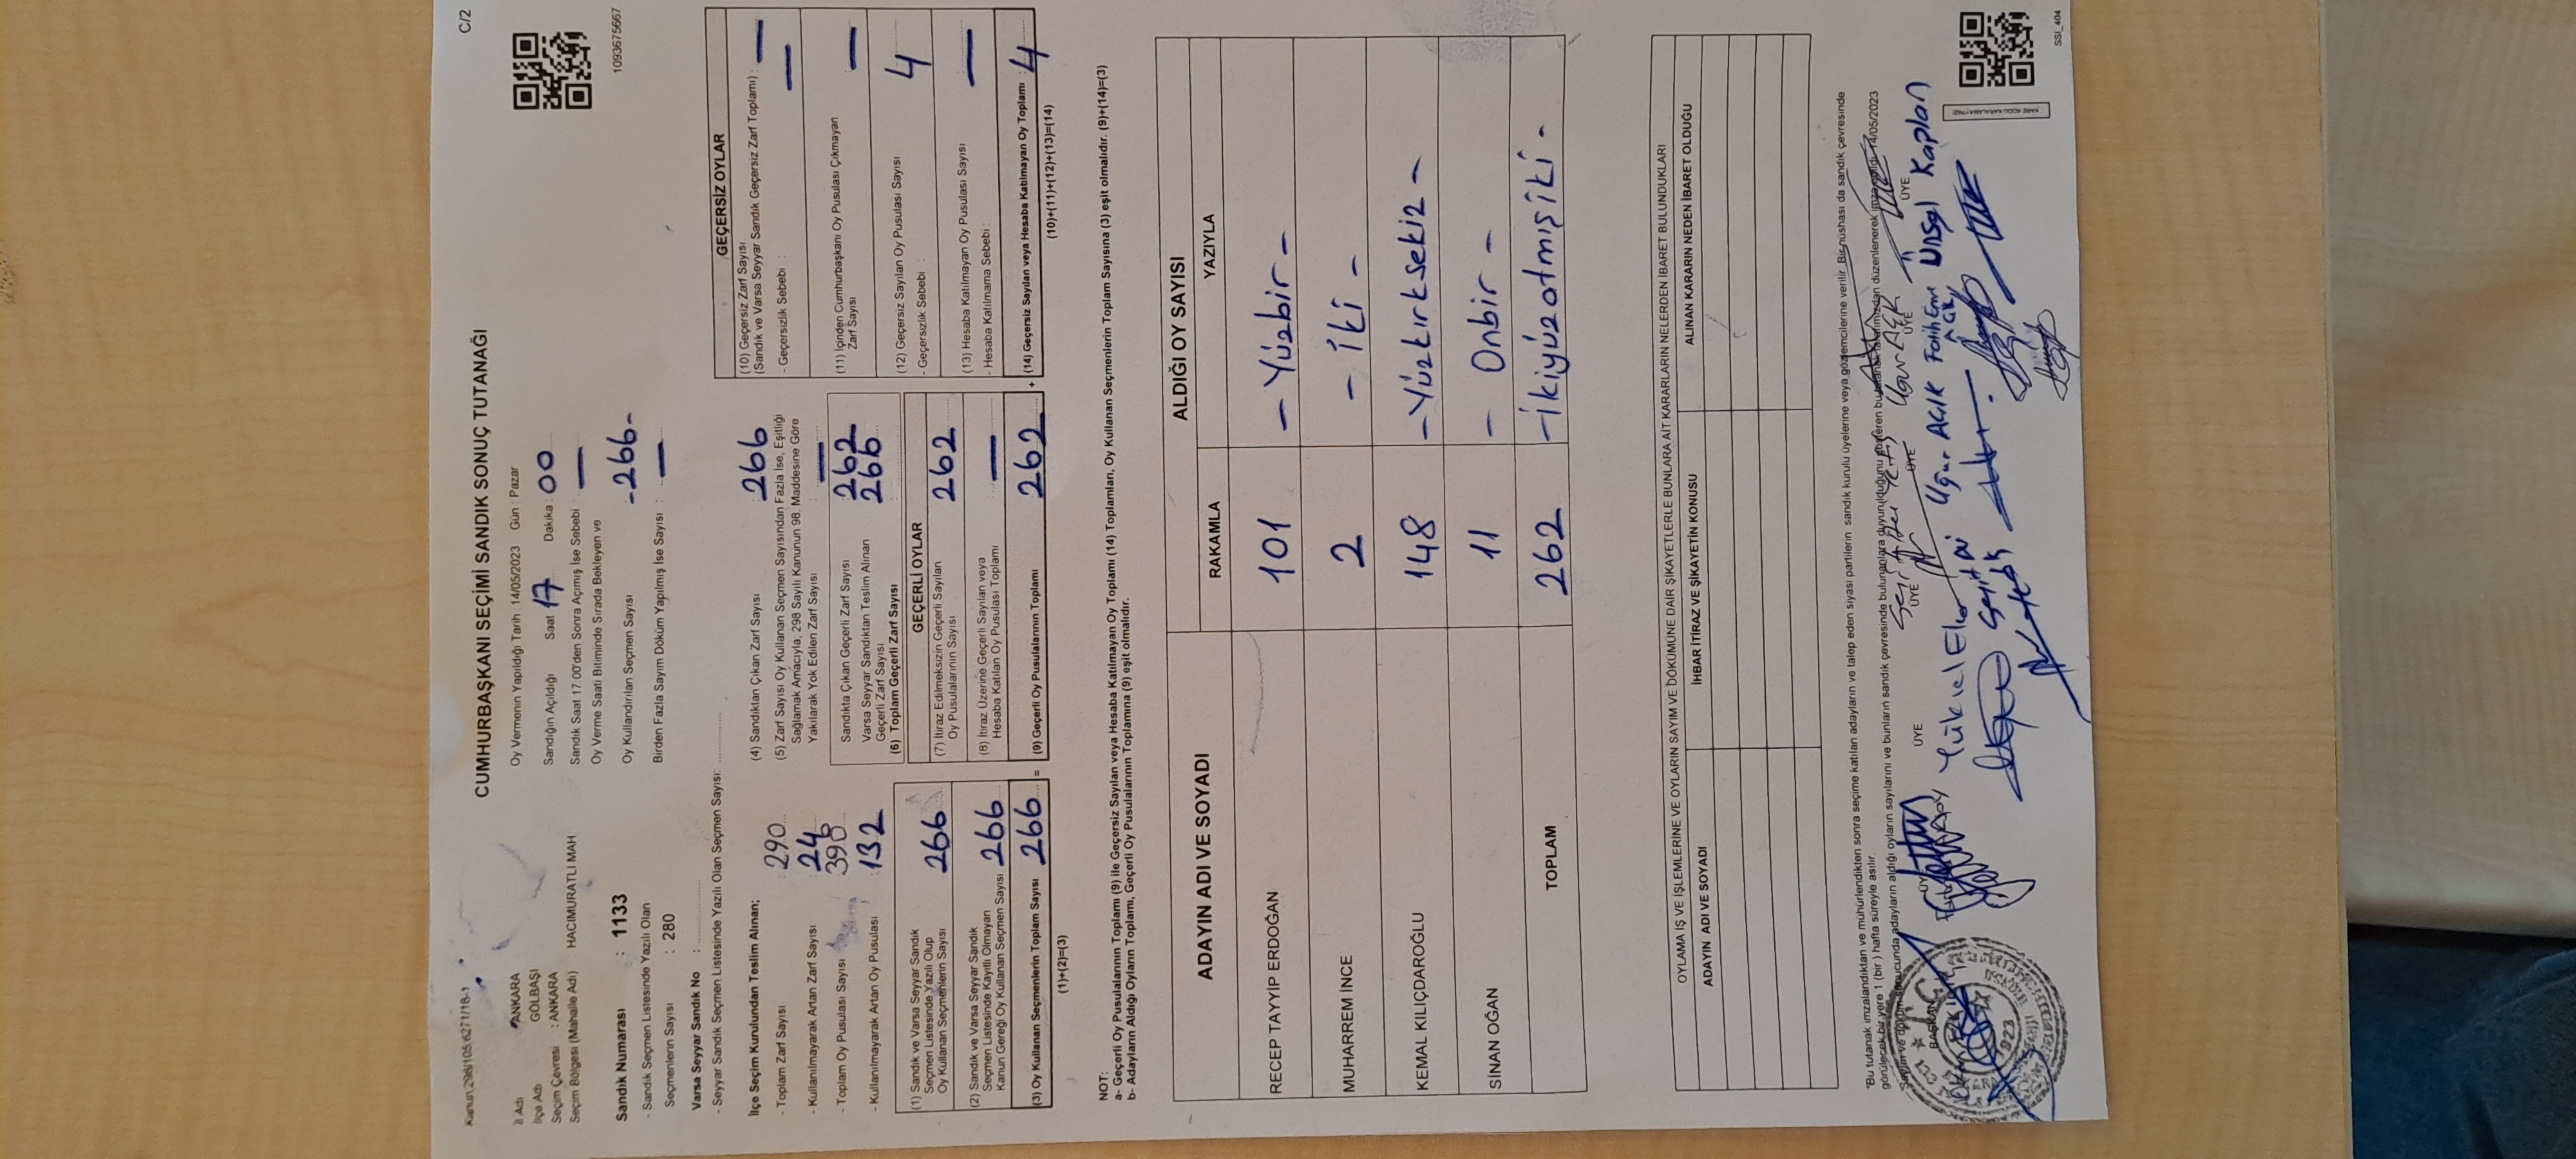 Kanun 298/105 6271/18-1
C/2
CUMHURBAŞKANI SEÇİMİ SANDIK SONUÇ TUTANAĞI
İl Adı ANKARA
İlçe Adı GÖLBAŞI
Seçim Çevresi : ANKARA
Seçim Bölgesi (Mahalle Adı) HACIMURATLI MAH
Oy Vermenin Yapıldığı Tarih : 14/05/2023 Gün : Pazar
Sandığın Açıldığı Saat 17 Dakika : 00
Sandık Saat 17.00'den Sonra Açımış İse Sebebi : —
Oy Verme Saati Bitiminde Sırada Bekleyen ve
Oy Kullandırılan Seçmen Sayısı -266-
Birden Fazla Sayım Döküm Yapılmış İse Sayısı : —
1093675667
Sandık Numarası : 1133
- Sandık Seçmen Listesinde Yazılı Olan
Seçmenlerin Sayısı : 280
Varsa Seyyar Sandık No :
- Seyyar Sandık Seçmen Listesinde Yazılı Olan Seçmen Sayısı:
İlçe Seçim Kurulundan Teslim Alınan;
- Toplam Zarf Sayısı 290
- Kullanılmayarak Artan Zarf Sayısı 24
- Toplam Oy Pusulası Sayısı 398
- Kullanılmayarak Artan Oy Pusulası : 132
(1) Sandık ve Varsa Seyyar Sandık
Seçmen Listesinde Yazılı Olup
Oy Kullanan Seçmenlerin Sayısı 266
(2) Sandık ve Varsa Seyyar Sandık
Seçmen Listesinde Kayıtlı Olmayan
Kanun Gereği Oy Kullanan Seçmen Sayısı : 266
(3) Oy Kullanan Seçmenlerin Toplam Sayısı : 266 =
(1)+(2)=(3)
(4) Sandıktan Çıkan Zarf Sayısı 266
(5) Zarf Sayısı Oy Kullanan Seçmen Sayısından Fazla İse, Eşitliği
Sağlamak Amacıyla, 298 Sayılı Kanunun 98. Maddesine Göre
Yakılarak Yok Edilen Zarf Sayısı : —
Sandıkta Çıkan Geçerli Zarf Sayısı 262
Varsa Seyyar Sandıktan Teslim Alınan
Geçerli Zarf Sayısı 266
(6) Toplam Geçerli Zarf Sayısı
GEÇERLİ OYLAR
(7) İtiraz Edilmeksizin Geçerli Sayılan
Oy Pusulalarının Sayısı 262
(8) İtiraz Üzerine Geçerli Sayılan veya
Hesaba Katılan Oy Pusulası Toplamı : —
(9) Geçerli Oy Pusulalarının Toplamı 262 +
GEÇERSİZ OYLAR
(10) Geçersiz Zarf Sayısı
(Sandık ve Varsa Seyyar Sandık Geçersiz Zarf Toplamı) : —
- Geçersizlik Sebebi : —
(11) İçinden Cumhurbaşkanı Oy Pusulası Çıkmayan
Zarf Sayısı —
(12) Geçersiz Sayılan Oy Pusulası Sayısı 4
- Geçersizlik Sebebi :
(13) Hesaba Katılmayan Oy Pusulası Sayısı —
- Hesaba Katılmama Sebebi :
(14) Geçersiz Sayılan veya Hesaba Katılmayan Oy Toplamı : 4
(10)+(11)+(12)+(13)=(14)
NOT:
a- Geçerli Oy Pusulalarının Toplamı (9) ile Geçersiz Sayılan veya Hesaba Katılmayan Oy Toplamı (14) Toplamları, Oy Kullanan Seçmenlerin Toplam Sayısına (3) eşit olmalıdır. (9)+(14)=(3)
b- Adayların Aldığı Oyların Toplamı, Geçerli Oy Pusulalarının Toplamına (9) eşit olmalıdır.
ADAYIN ADI VE SOYADI ALDIĞI OY SAYISI
RAKAMLA YAZIYLA
RECEP TAYYİP ERDOĞAN 101 - Yüzbir -
MUHARREM İNCE 2 - İki -
KEMAL KILIÇDAROĞLU 148 - Yüzkırksekiz -
SİNAN OĞAN 11 - Onbir -
TOPLAM 262 - İkiyüzatmışiki -
OYLAMA İŞ VE İŞLEMLERİNE VE OYLARIN SAYIM VE DÖKÜMÜNE DAİR ŞİKAYETLERLE BUNLARA AİT KARARLARIN NELERDEN İBARET BULUNDUKLARI
ADAYIN ADI VE SOYADI İHBAR İTİRAZ VE ŞİKAYETİN KONUSU ALINAN KARARIN NEDEN İBARET OLDUĞU
"Bu tutanak imzalandıktan ve mühürlendikten sonra seçime katılan adayların ve talep eden siyasi partilerin sandık kurulu üyelerine veya gözlemcilerine verilir. Bir nüshası da sandık çevresinde
görülecek bir yere 1 (bir ) hafta süreyle asılır.
Sayım ve döküm sonucunda adayların aldığı oyların sayılarını ve bunların sandık çevresinde bulunanlara duyurulduğunu gösteren bu tutanak tarafımızdan düzenlenerek imza edildi. 14/05/2023
BAŞKAN ÜYE ÜYE ÜYE ÜYE ÜYE ÜYE
Uğur AÇIK
Uğur AÇIK Fatih Emre AÇIK Ünsal Kaplan
Seyit Ali
1923
KARE KODU KARALAMAYINIZ!
SSI_404